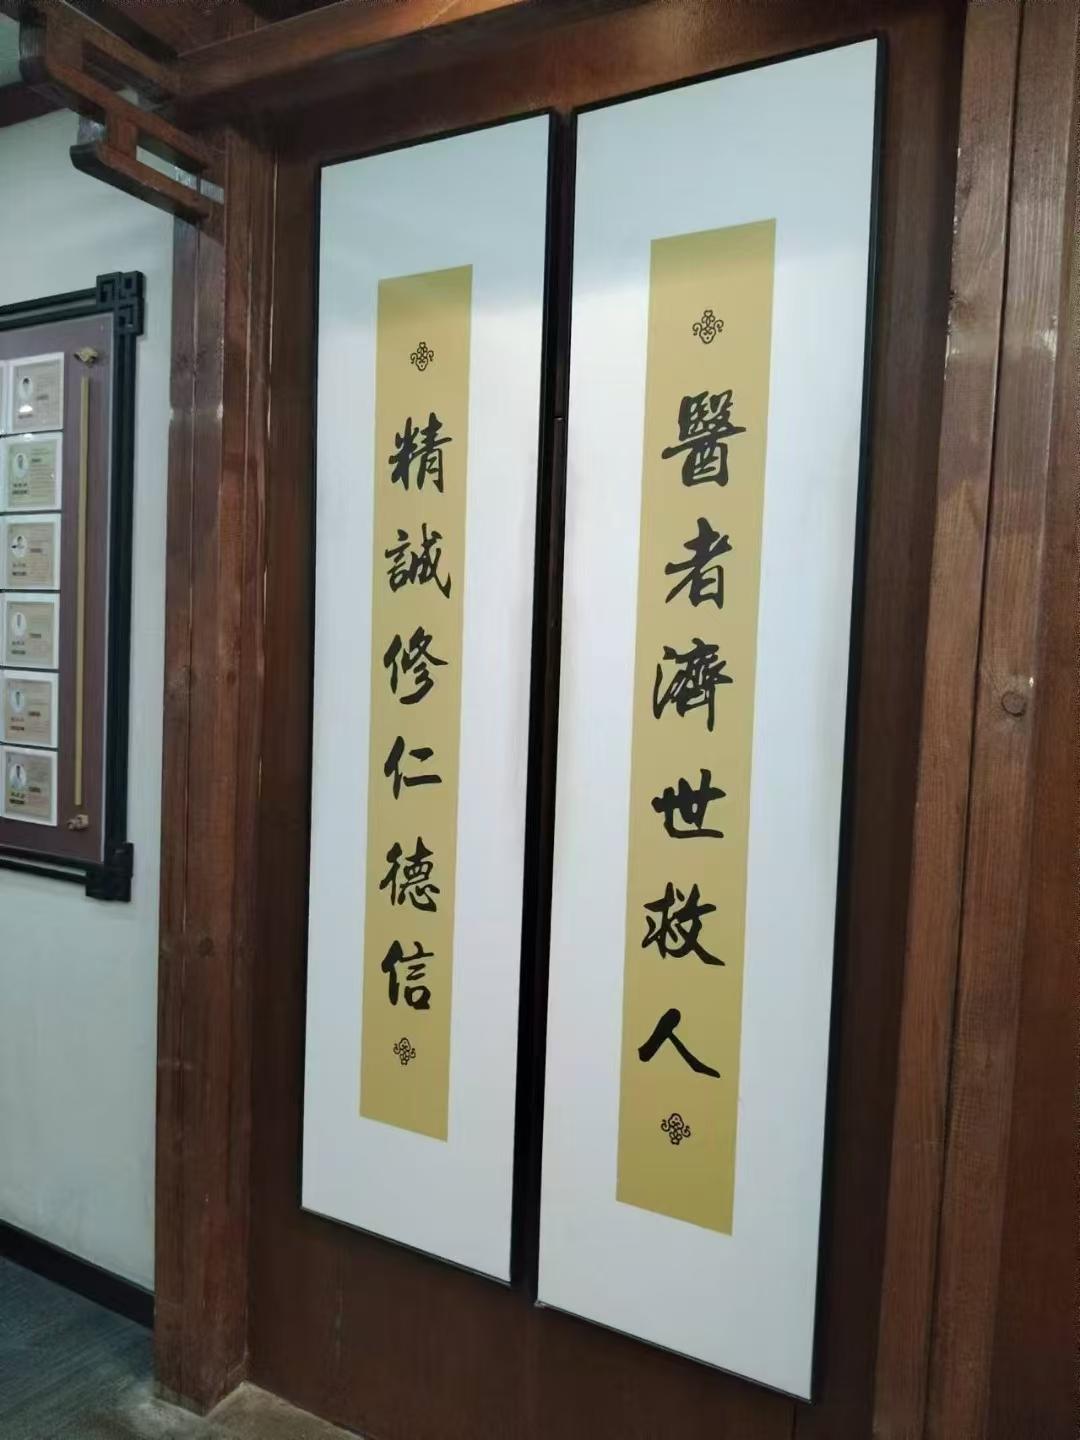 醫者濟世救人
精誠修仁德信